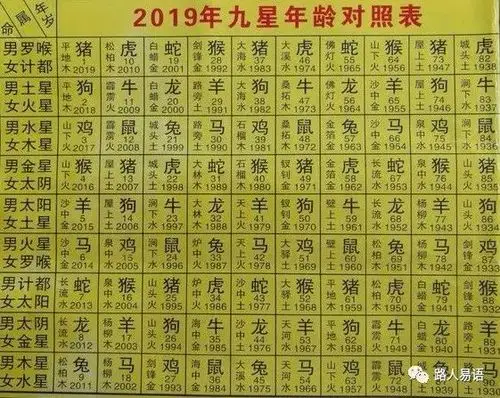 属年岁命
2019年九星年龄对照表
男罗喉 平地木 猪 1 2019 松柏木 虎 10 2010 白蜡金 蛇 19 2001 剑锋金 猴 28 1992 大海水 猪 37 1983 大溪水 虎 46 1974 佛灯火 蛇 55 1965 山下火 猴 64 1956 屋上土 猪 73 1947 城头土 虎 82 1938
女计都
男土星 平地木 狗 2 2018 霹雳火 牛 11 2009 白蜡金 龙 20 2000 路旁土 羊 29 1991 大海水 狗 38 1982 桑柘木 牛 47 1973 佛灯火 龙 56 1964 沙中金 羊 65 1955 屋上土 狗 74 1946 涧下水 牛 83 1937
女火星
男水星 山下火 鸡 3 2017 霹雳火 鼠 12 2008 城头土 兔 21 1999 路旁土 马 30 1990 石榴木 鸡 39 1981 桑柘木 鼠 48 1972 金箔金 兔 57 1963 沙中金 马 66 1954 泉中水 鸡 75 1945 涧下水 鼠 84 1936
女木星
男金星 山下火 猴 4 2016 屋上土 猪 13 2007 城头土 虎 22 1998 大林木 蛇 31 1989 石榴木 猴 40 1980 钗钏金 猪 49 1971 金箔金 虎 58 1962 长流水 蛇 67 1953 泉中水 猴 76 1944 山头火 猪 85 1935
女太阴
男太阳 沙中金 羊 5 2015 屋上土 狗 14 2006 涧下水 牛 23 1997 大林木 龙 32 1988 天上火 羊 41 1979 钗钏金 狗 50 1970 壁上土 牛 59 1961 长流水 龙 68 1952 杨柳木 羊 77 1943 山头火 狗 86 1934
女土星
男火星 沙中金 马 6 2014 泉中水 鸡 15 2005 涧下水 鼠 24 1996 炉中火 兔 33 1987 天上火 马 42 1978 大驿土 鸡 51 1969 壁上土 鼠 60 1960 松柏木 兔 69 1951 杨柳木 马 78 1942 剑锋金 鸡 87 1933
女罗喉
男计都 长流水 蛇 7 2013 泉中水 猴 16 2004 山头火 猪 25 1995 炉中火 虎 34 1986 沙中土 蛇 43 1977 大驿土 猴 52 1968 平地木 猪 61 1959 松柏木 虎 70 1950 白蜡金 蛇 79 1941 剑锋金 猴 88 1932
女太阳
男太阴 长流水 龙 8 2012 杨柳木 羊 17 2003 山头火 狗 26 1994 海中金 牛 35 1985 沙中土 龙 44 1976 天河水 羊 53 1967 平地木 狗 62 1958 霹雳火 牛 71 1949 白蜡金 龙 80 1940 路旁土 羊 89 1931
女金星
男木星 松柏木 兔 9 2011 杨柳木 马 18 2002 剑锋金 鸡 27 1993 海中金 鼠 36 1984 大溪水 兔 45 1975 天河水 马 54 1966 山下火 鸡 63 1957 霹雳火 鼠
女水星
路人易语